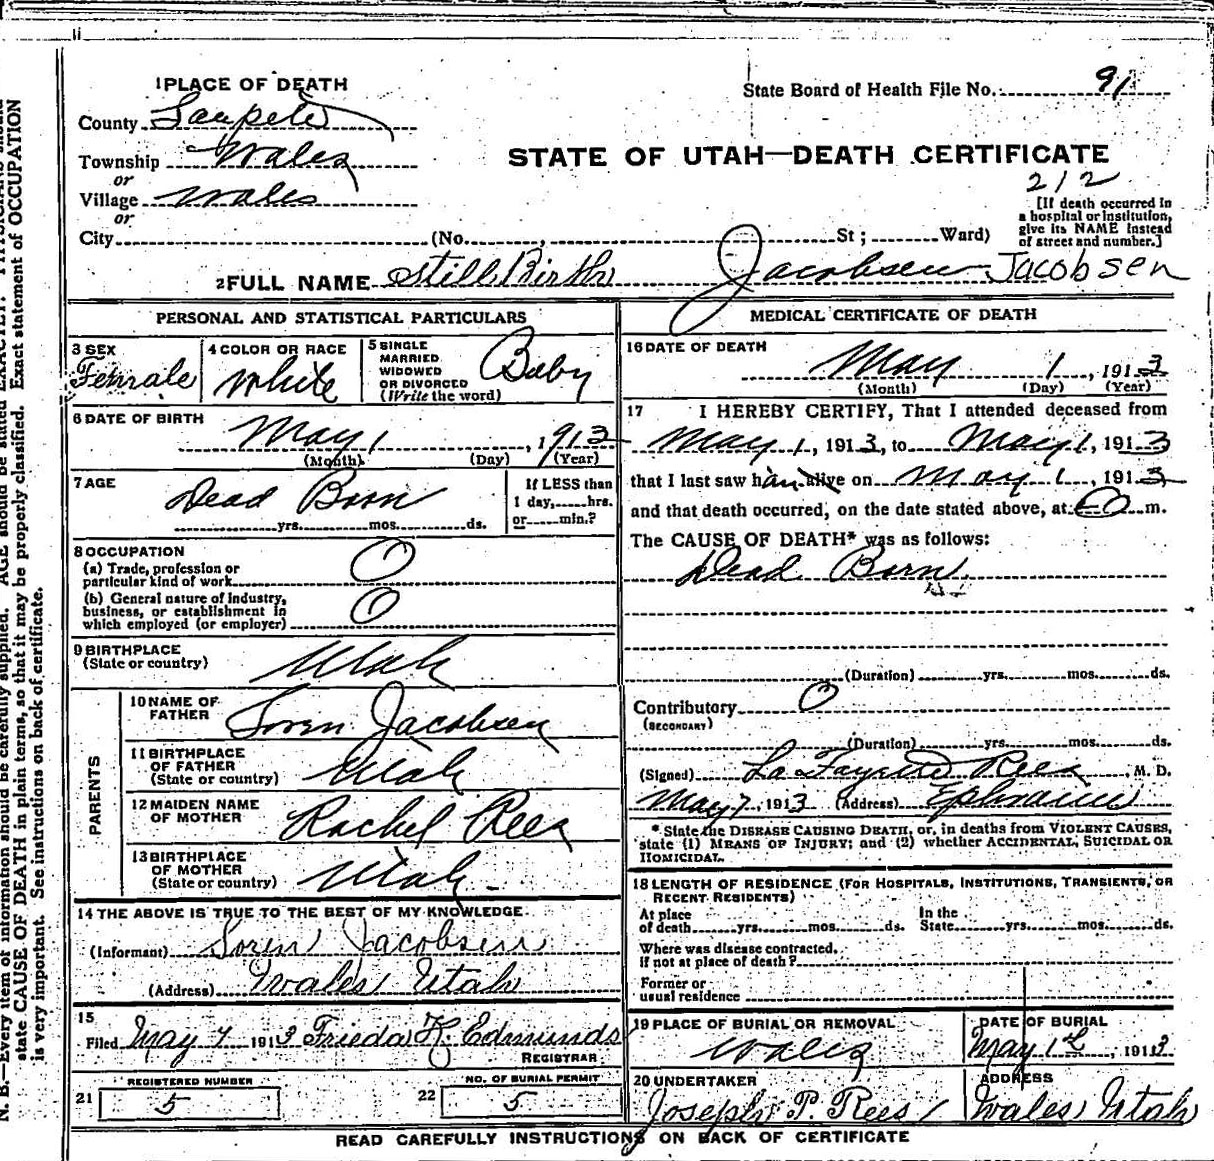 1 PLACE OF DEATH
State Board of Health File No. 91
County Sanpete
STATE OF UTAH—DEATH CERTIFICATE
Township Wales
or
212
Village Wales
or
[If death occurred in
a hospital or institution,
give its NAME instead
of street and number.]
City (No. , St; Ward)
2 FULL NAME Still Birth Jacobsen Jacobsen
PERSONAL AND STATISTICAL PARTICULARS
3 SEX
Female
4 COLOR OR RACE
White
5 SINGLE
MARRIED
WIDOWED
OR DIVORCED
(Write the word)
Baby
6 DATE OF BIRTH
May 1, 1913
(Month) (Day) (Year)
7 AGE
Dead Born
yrs. mos. ds.
If LESS than
1 day, hrs.
or min.?
8 OCCUPATION
(a) Trade, profession or
particular kind of work O
(b) General nature of industry,
business, or establishment in
which employed (or employer) O
9 BIRTHPLACE
(State or country)
Utah
PARENTS
10 NAME OF
FATHER
Soren Jacobsen
11 BIRTHPLACE
OF FATHER
(State or country)
Utah
12 MAIDEN NAME
OF MOTHER
Rachel Rees
13 BIRTHPLACE
OF MOTHER
(State or country)
Utah
14 THE ABOVE IS TRUE TO THE BEST OF MY KNOWLEDGE
(Informant) Soren Jacobsen
(Address) Wales Utah
15
Filed May 7 1913 Frieda K. Edmunds
REGISTRAR
REGISTERED NUMBER
21 5
NO. OF BURIAL PERMIT
22 5
MEDICAL CERTIFICATE OF DEATH
16 DATE OF DEATH
May 1, 1913
(Month) (Day) (Year)
17 I HEREBY CERTIFY, That I attended deceased from
May 1, 1913, to May 1, 1913
that I last saw h alive on May 1, 1913,
and that death occurred, on the date stated above, at m.
The CAUSE OF DEATH* was as follows:
Dead Born
(Duration) yrs. mos. ds.
Contributory O
(SECONDARY)
(Duration) yrs. mos. ds.
(Signed) La Fayette Rees, M. D.
May 7, 1913 (Address) Ephraim
* State the DISEASE CAUSING DEATH, or, in deaths from VIOLENT CAUSES,
state (1) MEANS OF INJURY; and (2) whether ACCIDENTAL, SUICIDAL OR
HOMICIDAL.
18 LENGTH OF RESIDENCE (FOR HOSPITALS, INSTITUTIONS, TRANSIENTS, OR
RECENT RESIDENTS)
At place
of death yrs. mos. ds.
In the
State yrs. mos. ds.
Where was disease contracted,
if not at place of death?
Former or
usual residence
19 PLACE OF BURIAL OR REMOVAL
Wales
DATE OF BURIAL
May 1st, 1913
20 UNDERTAKER
Joseph P. Rees
ADDRESS
Wales Utah
READ CAREFULLY INSTRUCTIONS ON BACK OF CERTIFICATE
N. B.—Every item of information should be carefully supplied. AGE should be stated EXACTLY.
state CAUSE OF DEATH in plain terms, so that it may be properly classified. Exact statement of OCCUPATION
is very important. See instructions on back of certificate.